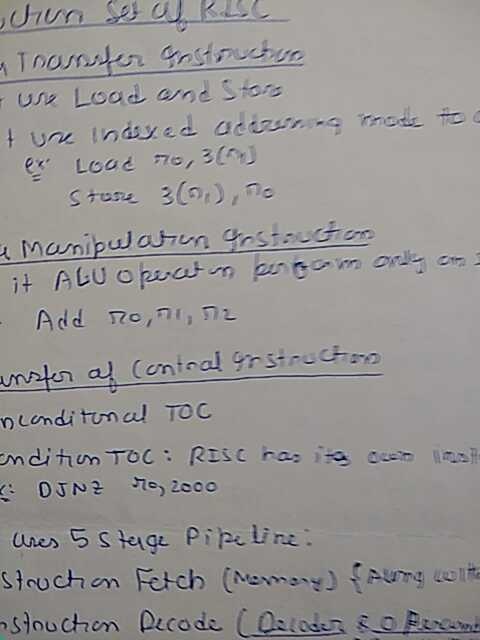 Set of RISC
Transfer Instruction
use Load and Store
use indexed addressing mode to
ex: Load r0, 3(r1)
Store 3(r1), r0
Manipulation Instruction
it ALU Operation perform only on
Add r0, r1, r2
of Control Instruction
TOC
TOC: RISC has its own
DJNZ r0, 2000
uses 5 Stage Pipeline:
Fetch (Memory) {Along
Decode (Decoder &